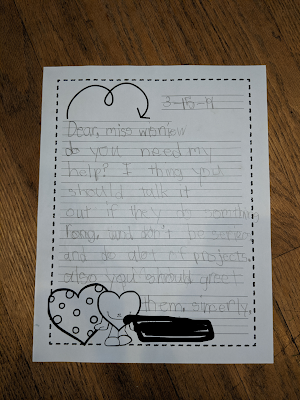 3-15-
Dear, miss
do you need my
help? I thing you
should talk it
out if they do somthing
and don't be
and do alot of projects.
also you should greet
them. sincerly